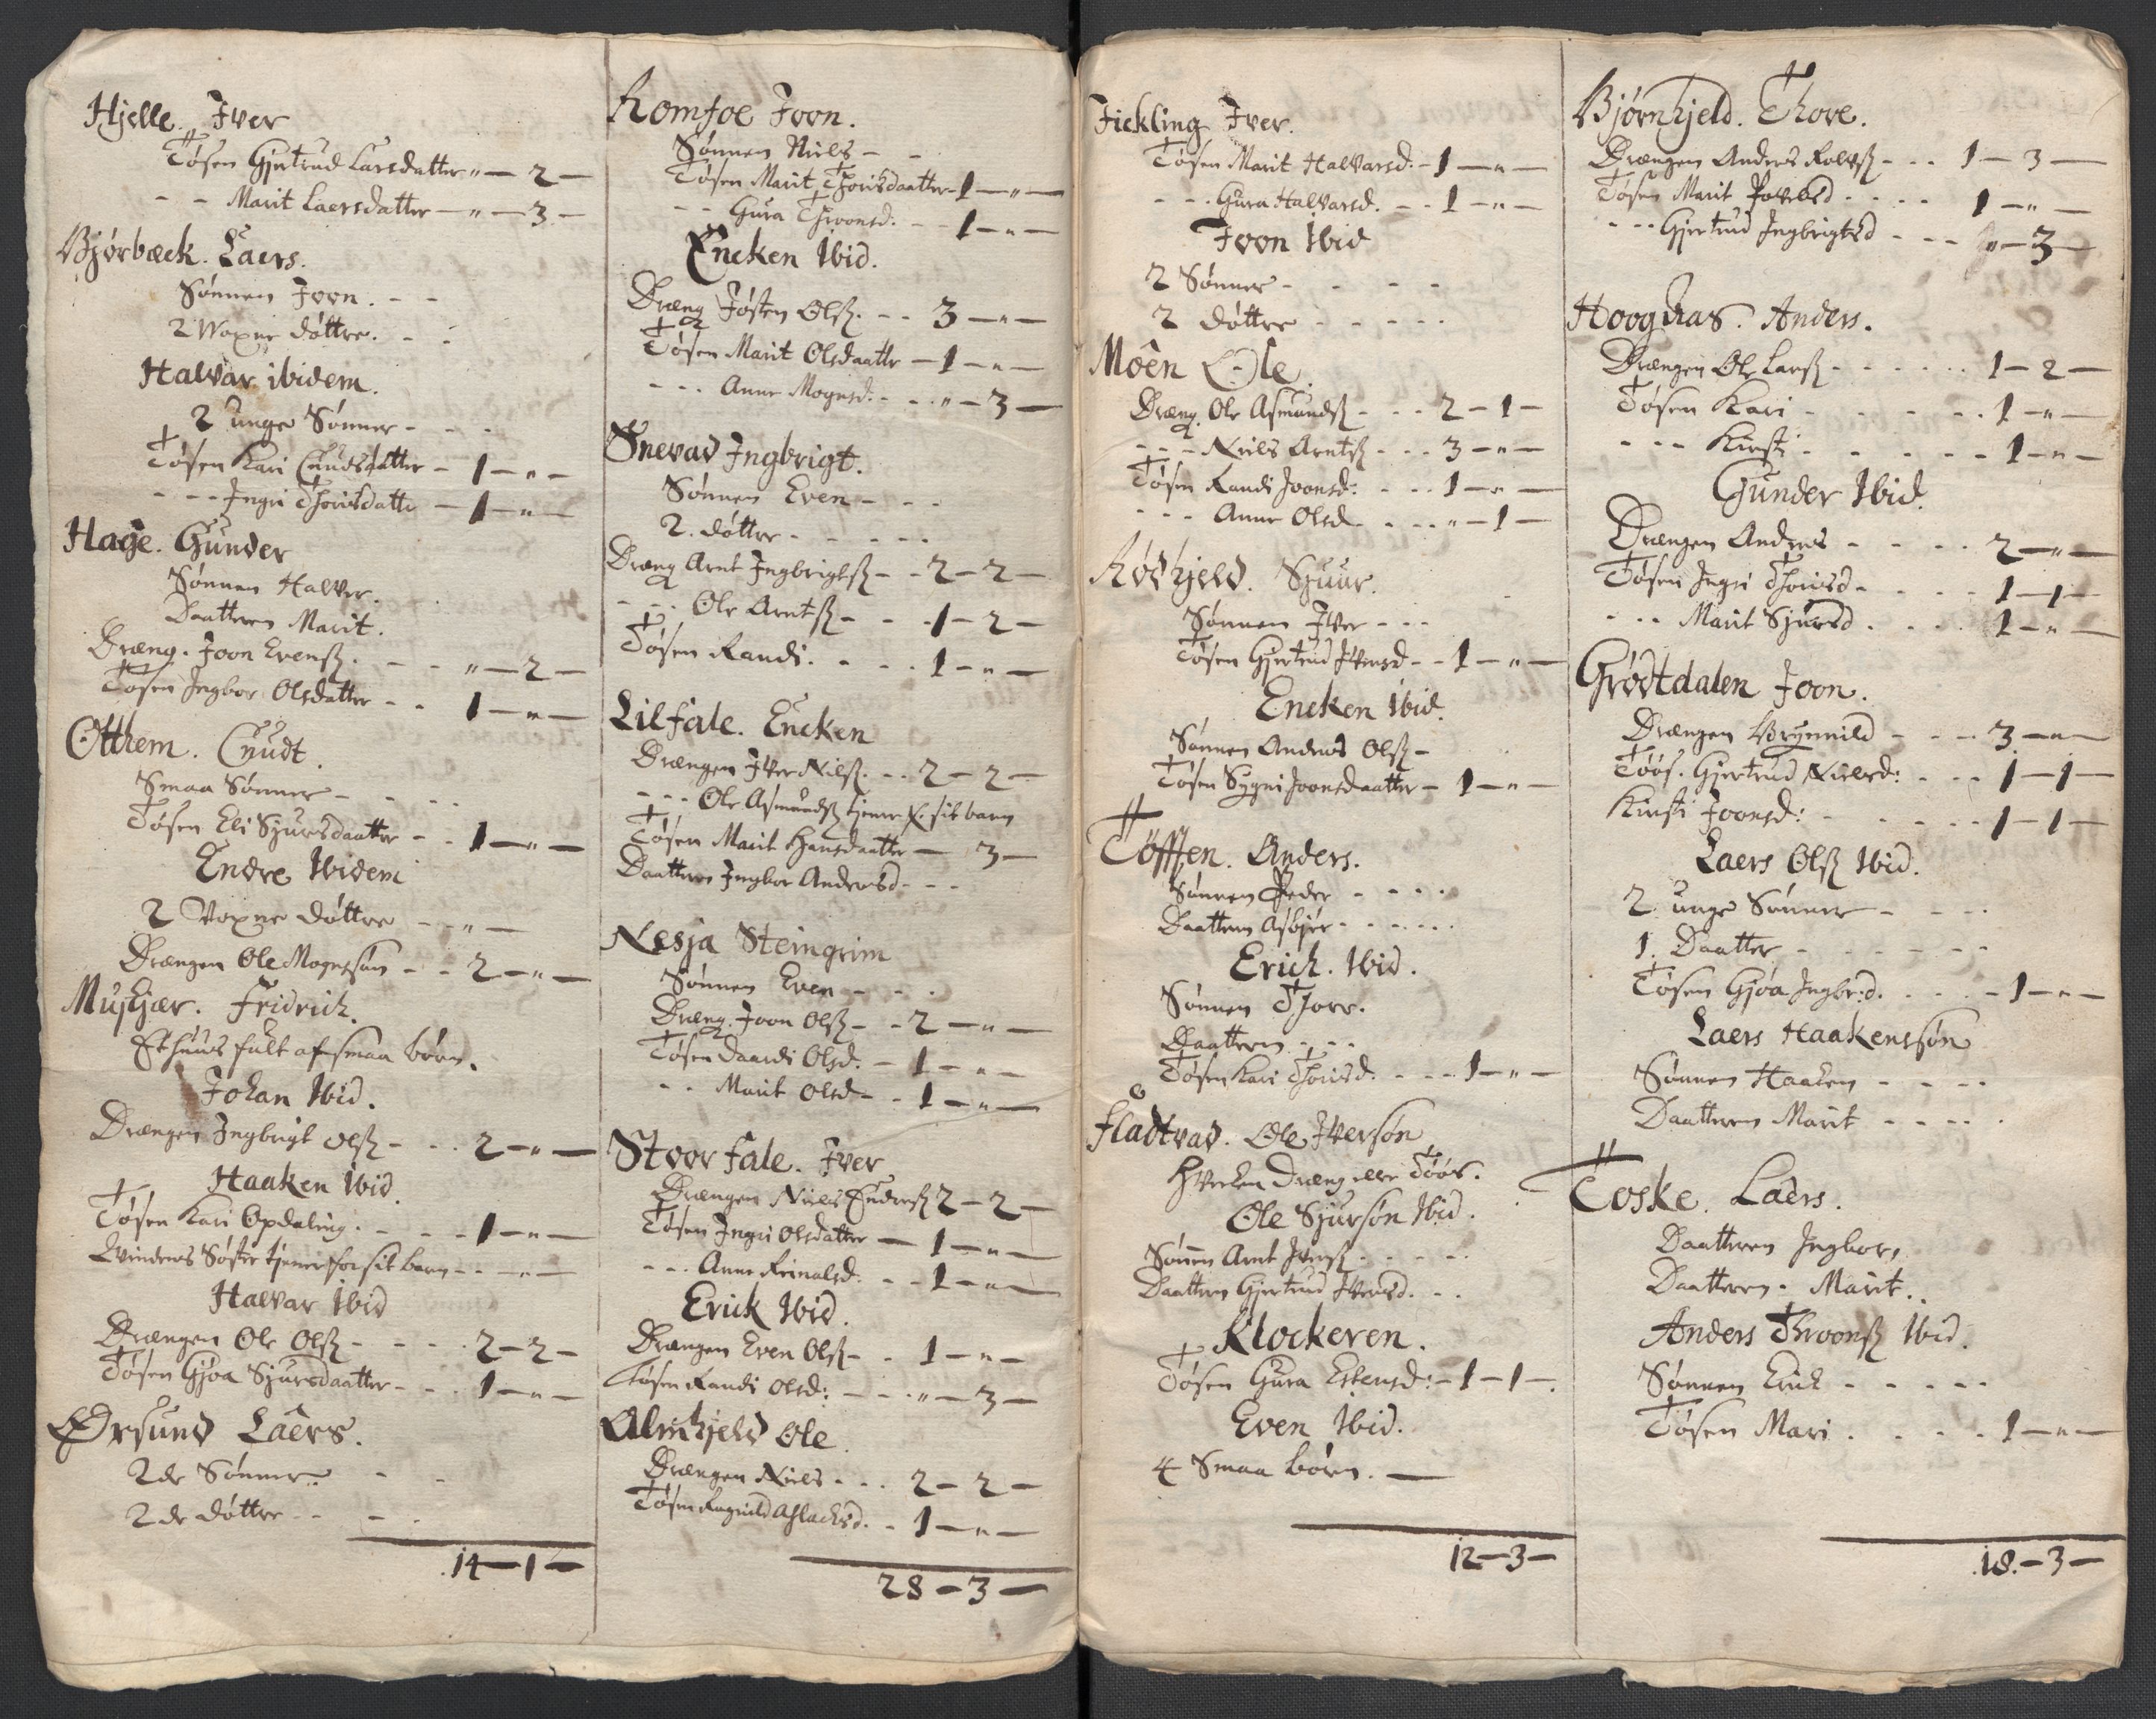 Hjelle. Iver
Tøsen Gjertrud Larsdatter „ — 2 —
- - Marit Laersdatter — „ — 3 —
Bjørbæck. Laers.
Sønnen Joon. - -
2 Woxne døttre. - -
Halvar ibidem.
2 unge Sønner - - -
Tøsen Kari Cnudsdatter - 1 — „ —
- - - Ingri Thorisdatter — 1 — „ —
Hage. Gunder
Sønnen Halver.
Daatteren Marit.
Dræng. Joon Evenß. - - - „ — 2 —
Tøsen Ingbor Olsdatter - - 1 — „ —
Otthem. Cnudt.
Smaa Sønner - - - -
Tøsen Eli Sjursdaatter - - 1 — „ —
Endre Ibidem
2 Voxne døttre - - „ —
Drængen Ole Mognsøn - - 2 — „ —
Muskjær. Fridrich.
Et huus fult af smaa børn.
Johan Ibid.
Drængen Ingbrigt Olß - - - 2 — „ —
Haaken Ibid.
Tøsen Kari Opdaling. - - - 1 — „ —
Qvindens Søster tjener for sit barn - - — „ —
Halvar Ibid
Drængen Ole Olß - - - - 2 — 2 —
Tøsen Gjøa Sjursdaatter - - - 1 — „ —
Ørsund Laers.
2de Sønner - -
2de døttre - - - -
14 — 1 —
Romfoe Joon.
Sønnen Niels - -
Tøsen Marit Thorisdaatter - 1 — „ —
- - Gura Throonsd. - - 1 — „ —
Encken Ibid.
Dræng Jøsten Olß. - - 3 — „ —
Tøsen Marit Olsdaatter — 1 — „ —
- - - Anne Mognsd. - - - „ — 3 —
Snevad Ingbrigt.
Sønnen Even - - -
2. døttre - - - - -
Dræng Arnt Ingbrigtß - - 2 — 2 —
- - - Ole Arntß - - - 1 — 2 —
Tøsen Randi. - - - - 1 — „ —
Lilfale. Encken
Drængen Iver Nilß. - - 2 — 2 —
- - - Ole Asmundß tjener f. sit barn
Tøsen Marit Hansdaatter — 3 —
Daatteren Ingbor Andersd - - -
Nesja Steingrim
Sønnen Even - - -
Dræng. Joon Olß - - 2 — „ —
Tøsen Daardi Olsd. - 1 — „ —
- - Marit Olsd - - 1 — „ —
Stoor fale. Iver
Drængen Niels Endreß 2 — 2 —
Tøsen Ingri Olsdatter — 1 — „ —
- - - Anne Reinalsd. - - 1 — „ —
Erick Ibid.
Drængen Even Olß - - 1 — „ —
Tøsen Randi Olsd: - - - „ — 3 —
Almskjeld Ole.
Drængen Niels - - - 2 — 2 —
Tøsen Ragnild Aslachsd. - 1 — „ —
28 — 3 —
Fickling Iver.
Tøsen Marit Halvarsd. - 1 — „ —
- - - Gura Halvarsd. - - 1 — „ —
Joon Ibid
2 Sønner - - - -
2 døttre - - - - -
Moên Ole.
Dræng. Ole Asmundß - - - 2 — 1 —
- - - Niels Arntß - - - 3 — „ —
Tøsen Randi Joonsd: - - - 1 — „ —
- - - Anne Olsd - - - - „ — 1 —
Rødkjeld. Sjuur.
Sønnen Iver - - -
Tøsen Gjertrud Iversd - - 1 — „ —
Encken Ibid.
Sønnen Anders Olß -
Tøsen Sygni Joonsdaatter - 1 — „ —
Tøfften. Anders.
Sønnen Peder - - - -
Daatteren Asbjør - - - - - -
Erich. Ibid.
Sønnen Thore.
Daatteren - - -
Tøsen Kari Thorisd. - - - 1 — „ —
Fladtvad. Ole Iversøn
Hverken dræng eller Tøøs.
Ole Sjursøn Ibid.
Sønnen Arnt Iverß - - - - -
Daatteren Gjertrud Iversd. - -
Klockeren.
Tøsen Gura Estensd: - 1 — 1 —
Even Ibid.
4 Smaa børn. —
12 — 3 —
Bjørnhjeld. Thore.
Drængen Anders Rolvß - - - 1 — 3 —
Tøsen Marit Povelsd - - - - 1 — „ —
- - - Gjertrud Ingbrigtsd - - - „ — 3 —
Hooghas. Anders.
Drængen Ole Larß - - - - - - 1 — 2 —
Tøsen Kari - - - - - - 1 — „ —
- - - Kirsti - - - - - - 1 — „ —
Gunder Ibid.
Drængen Anders - - - - 2 — „ —
Tøsen Ingri Thorisd - - - - - 1 — 1 —
- - - Marit Sjursd - - - - 1 — „ —
Grødtdalen Joon.
Drængen Brynnild - - - 3 — „ —
Tøøs. Gjertrud Nielsd: - - - 1 — 1 —
Kirsti Joonsd: - - - - - 1 — 1 —
Laers Olß Ibid.
2 unge Sønner - - - -
1. Daatter - - - - - -
Tøsen Gjøa Ingbr:d. - - - - 1 — „ —
Laers Haakensøn
Sønnen Haaken - - - -
Daatteren Marit - - - - -
Toske. Laers.
Daatteren Ingbor.
Daatteren. Marit.
Anders Throonß Ibid.
Sønnen Erich - - - - -
Tøsen Mari . - - - 1 — „ —
18. — 3 —